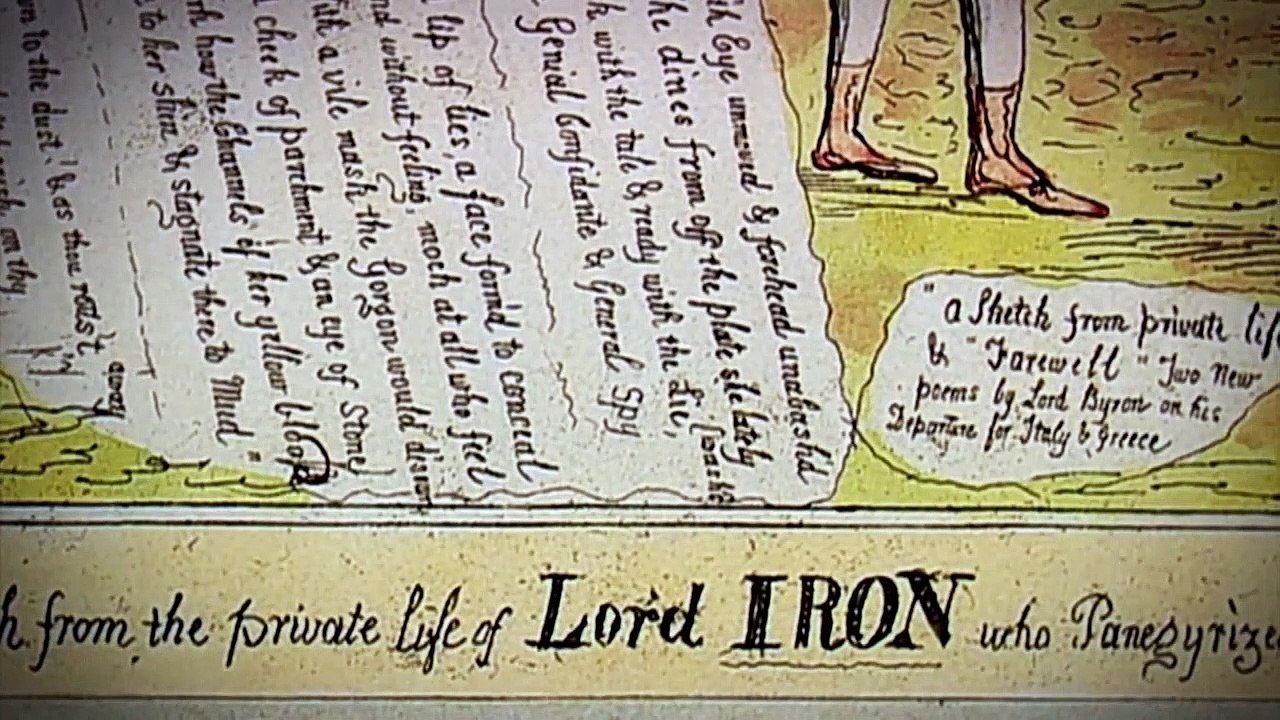 Eye unmoved & forehead unabash'd
he dines from off the plate she lately wash'd
with the tale & ready with the Lie,
Genial Confidante & General Spy
lip of lies, a face form'd to conceal
nd without feeling, mock at all who feel
ith a vile mask the Gorgon would disown
cheek of parchment & an eye of Stone
rk how the Channels of her yellow blood
to her skin, & stagnate there to Mud"
wn to the dust! & as thou rott'st away
on thy
"a Sketch from private life
& "Farewell" Two New
poems by Lord Byron on his
Departure for Italy & Greece
h from the private life of Lord IRON who Panegyrize